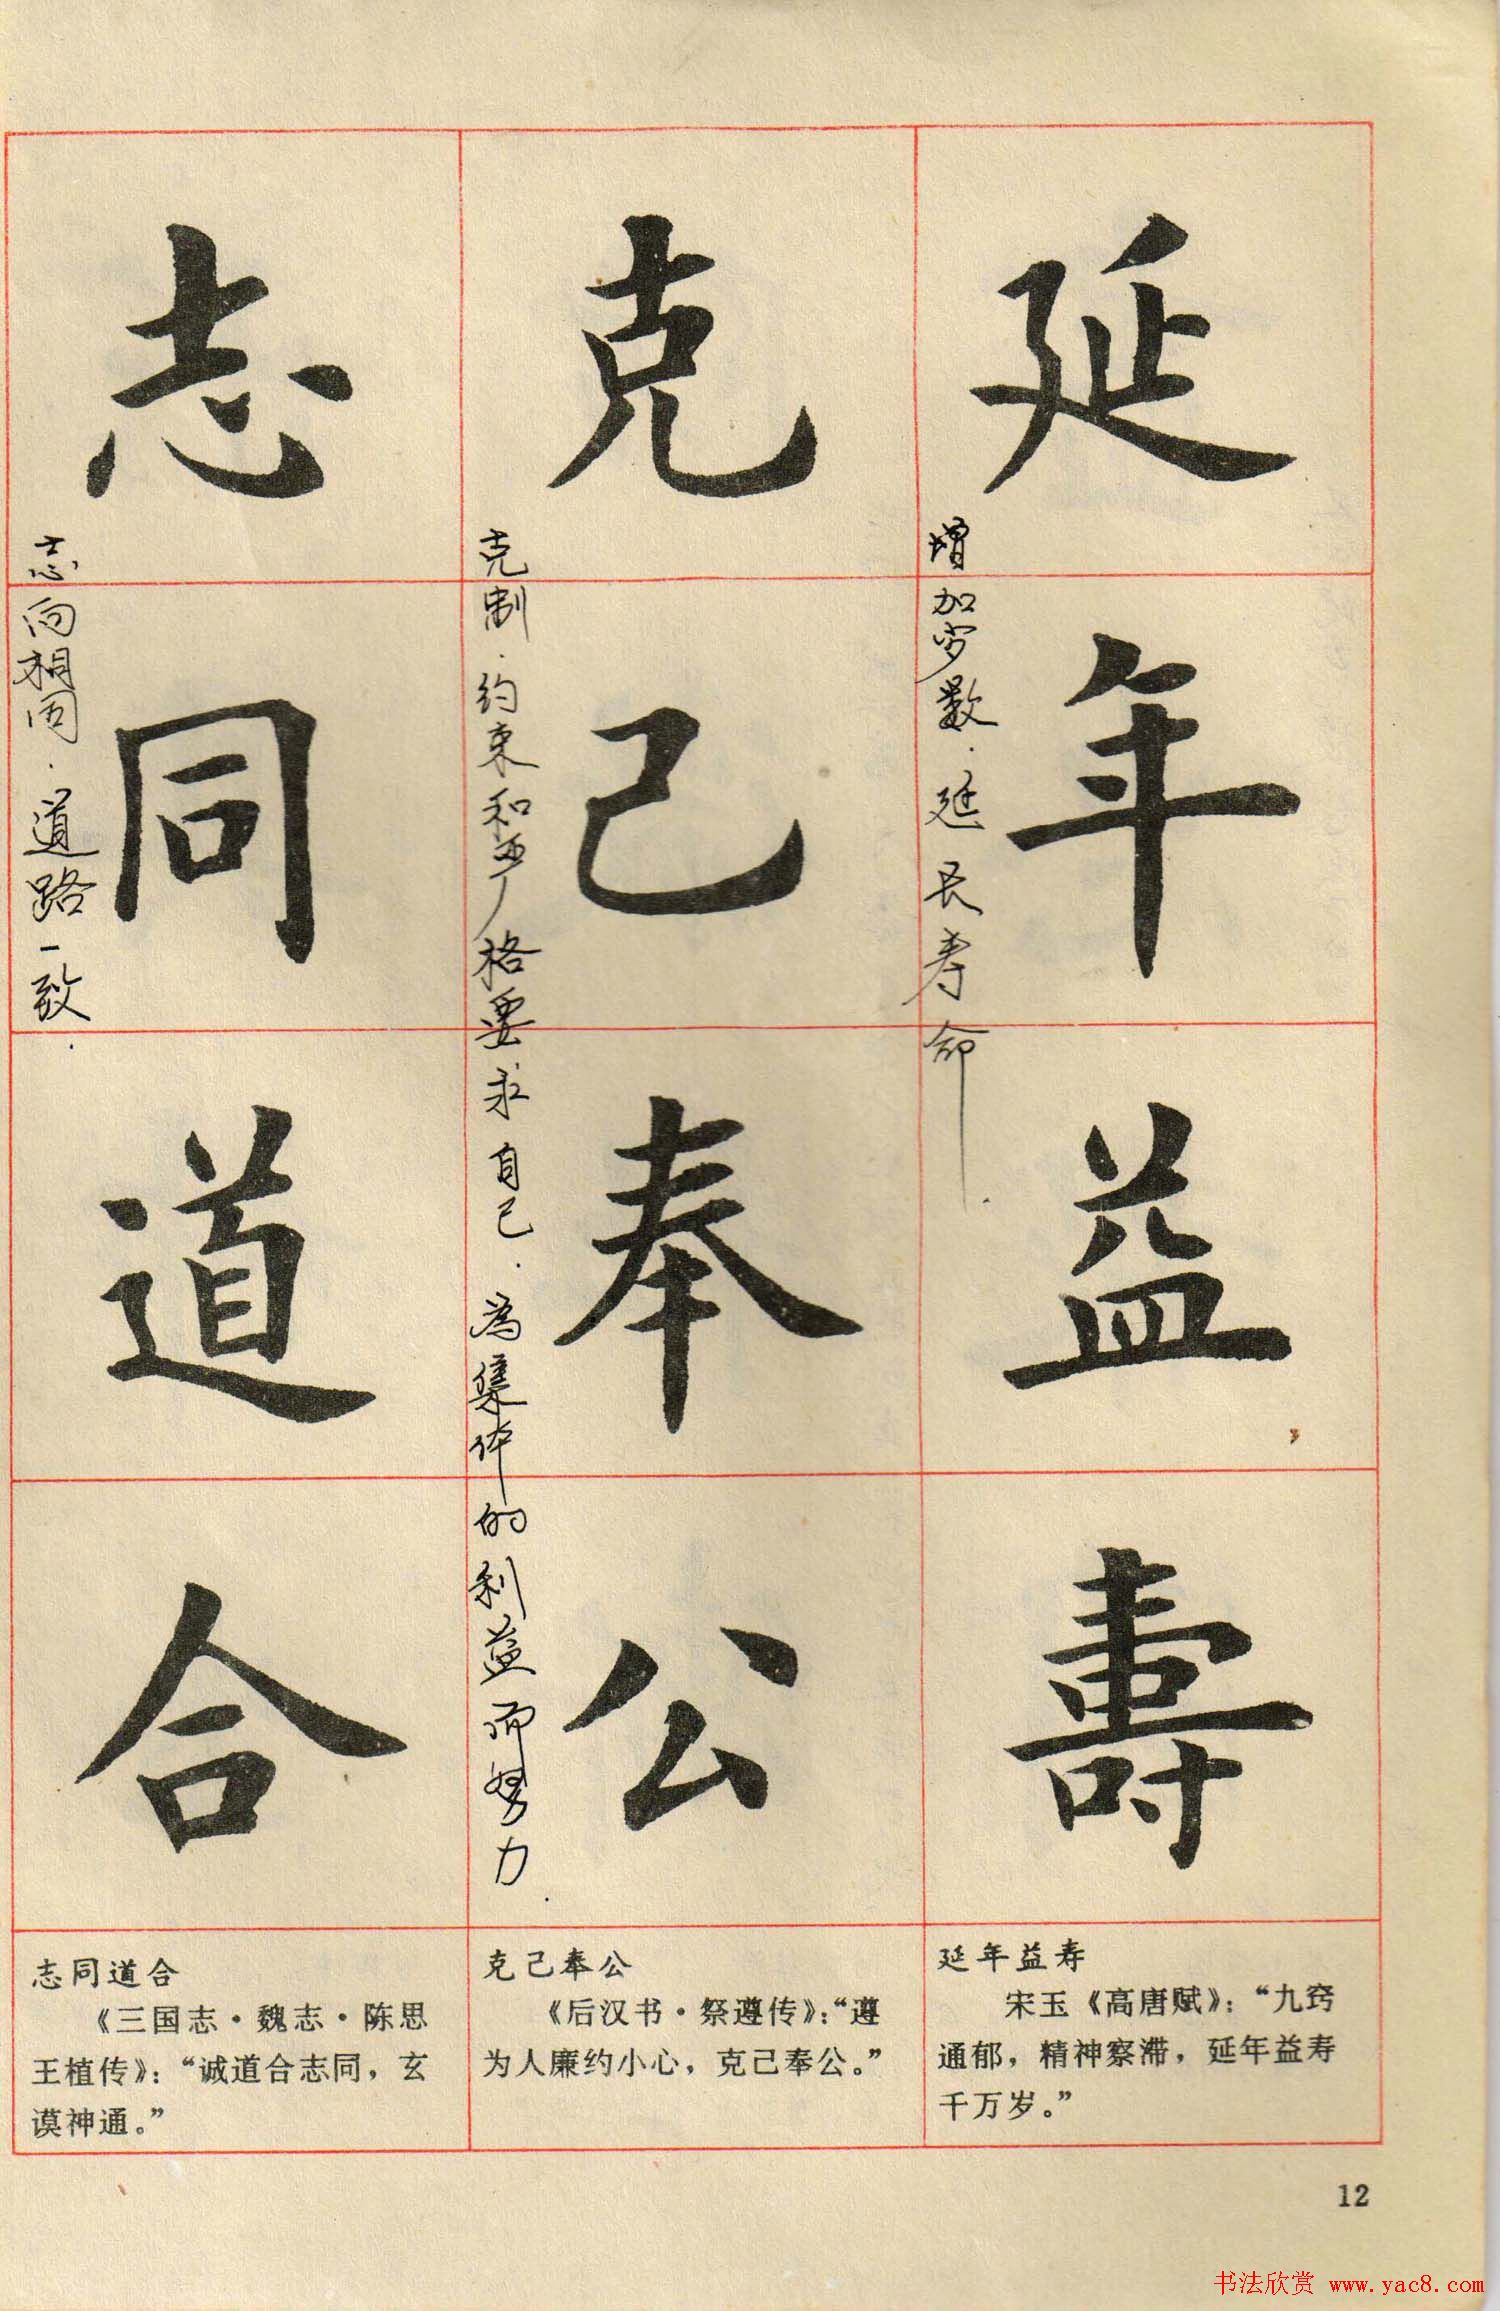 延年益壽
增加岁数.延长寿命.
克己奉公
克制.约束和严格要求自己.為集体的利益而努力.
志同道合
志向相同.道路一致.
延年益寿
宋玉《高唐赋》：“九窍
通郁，精神察滞，延年益寿
千万岁。”
克己奉公
《后汉书·祭遵传》：“遵
为人廉约小心，克己奉公。”
志同道合
《三国志·魏志·陈思
王植传》：“诚道合志同，玄
谟神通。”
12
书法欣赏 www.yac8.com